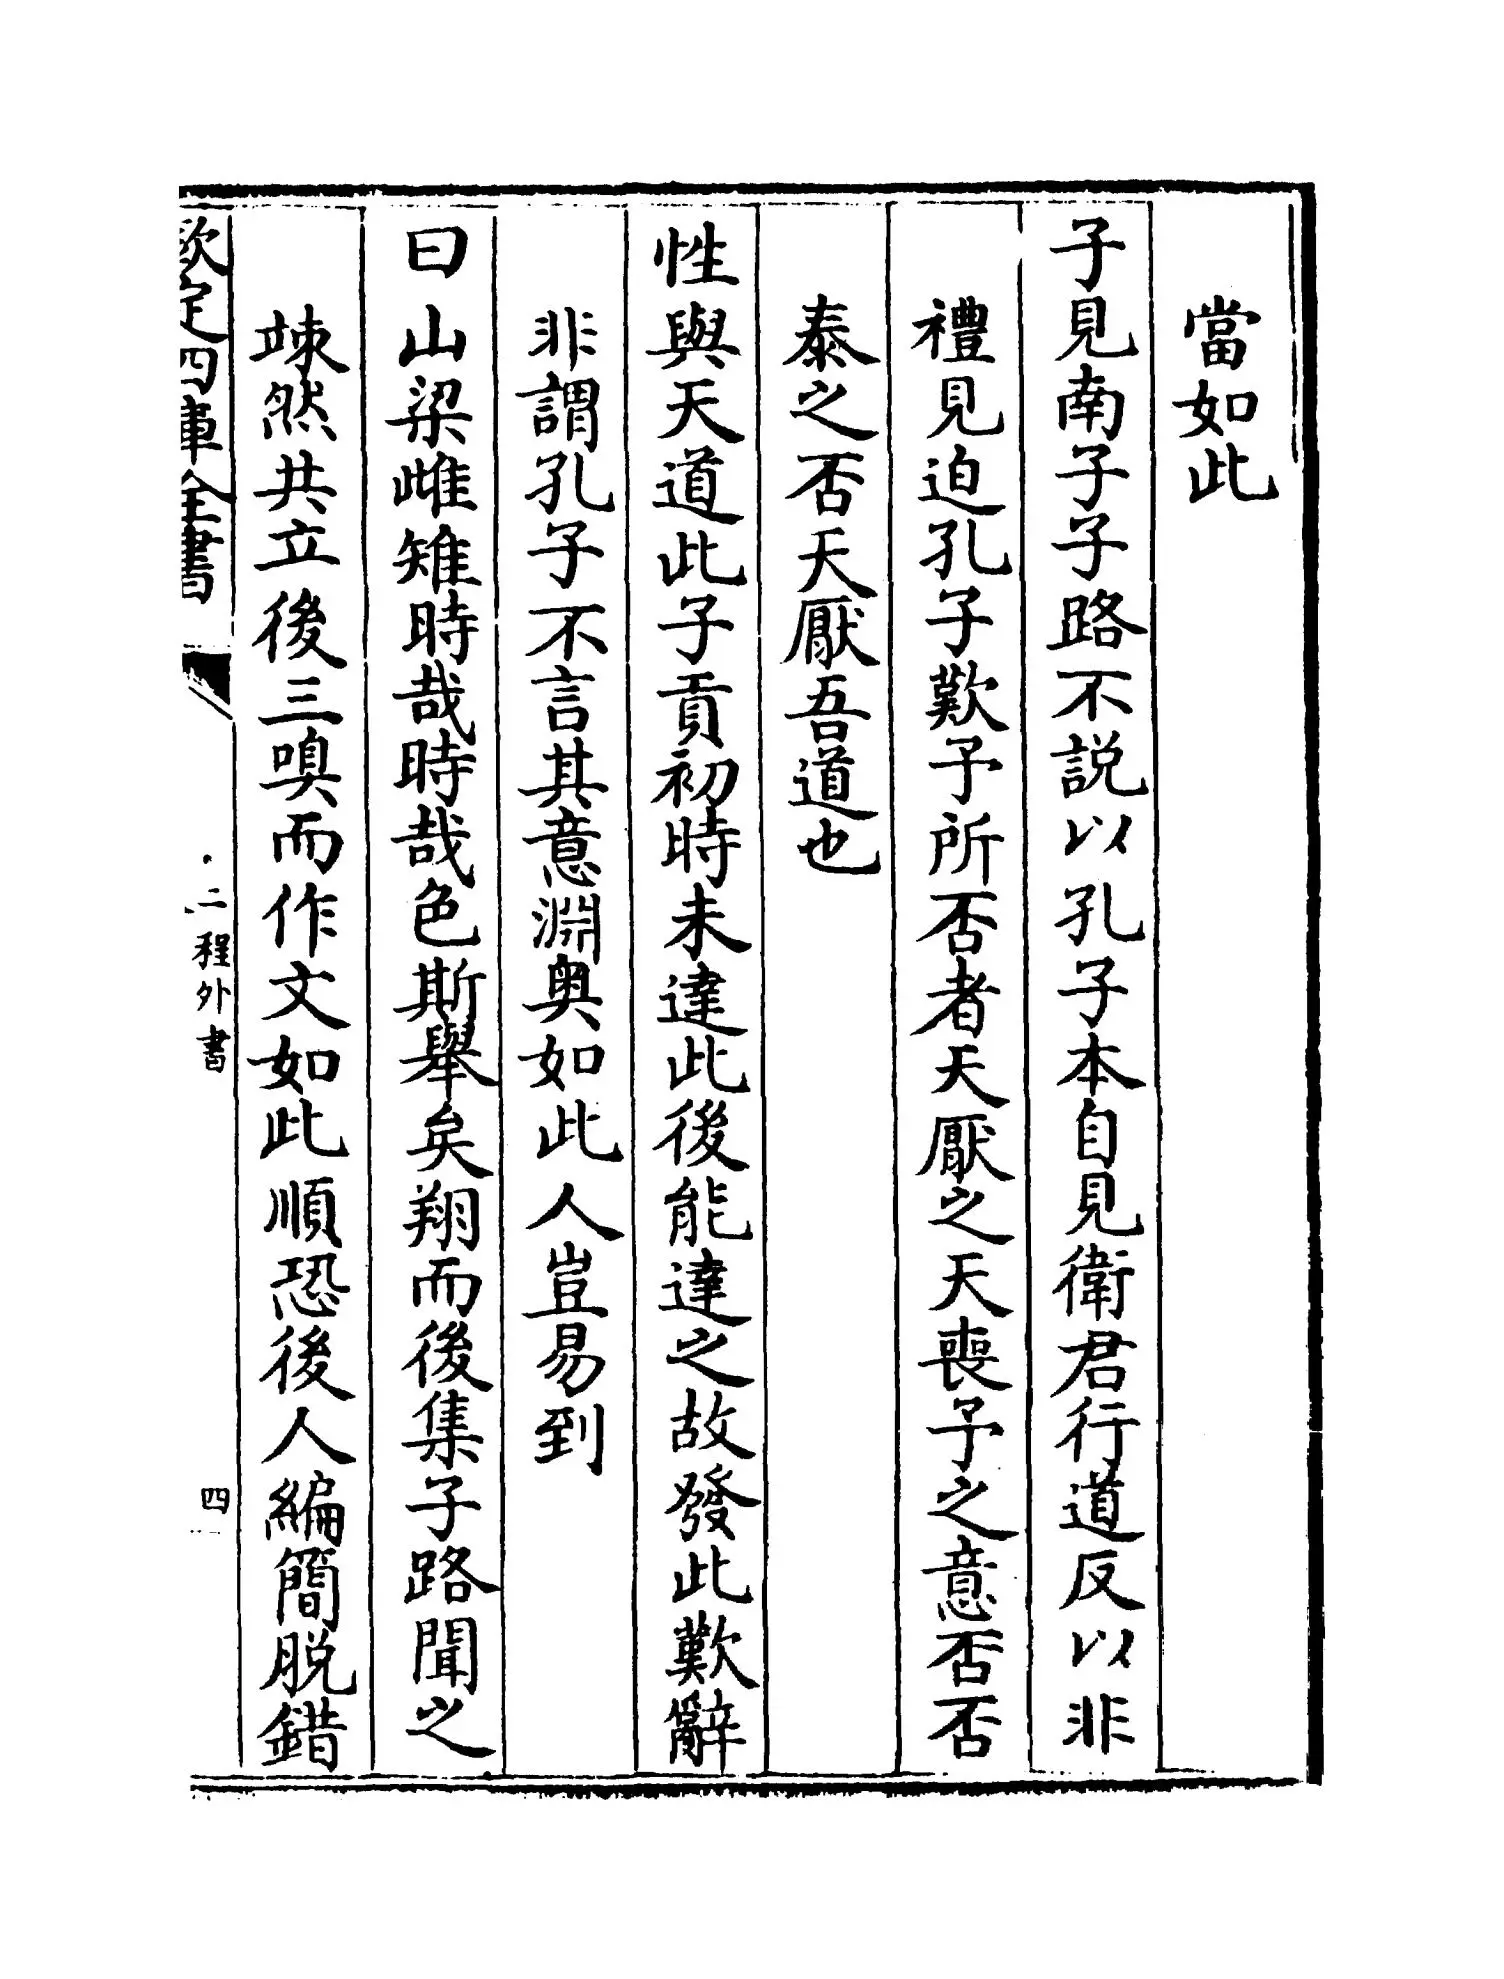 當如此
子見南子子路不說以孔子本自見衛君行道反以非
禮見迫孔子歎予所否者天厭之天喪予之意否否
泰之否天厭吾道也
性與天道此子貢初時未達此後能達之故發此歎辭
非謂孔子不言其意淵奥如此人豈易到
曰山梁雌雉時哉時哉色斯舉矣翔而後集子路聞之
竦然共立後三嗅而作文如此順恐後人編簡脱錯
欽定四庫全書
二程外書
四